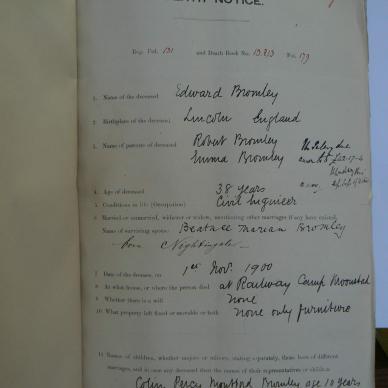 NOTICE.
Reg. Fol. 131 and Death Book No. 13.213 Fol. 179
1. Name of the deceased Edward Bromley
2. Birthplace of the deceased Lincoln England
3. Names of parents of deceased Robert Bromley
Emma Bromley
4. Age of deceased 38 years
5. Conditions in life (Occupation) Civil Engineer
6. Married or unmarried, widower or widow, mentioning other marriages if any have existed.
Name of surviving spouse: Beatrice Marian Bromley
born Nightingale
7. Date of the decease, on 1st Nov. 1900
8. At what house, or where the person died at Railway Camp
9. Whether there is a will none
10. What property left fixed or movable or both none only furniture
11. Names of children, whether majors or minors, stating separately, those born of different
marriages, and in case any deceased then the names of their representatives or children
Colin Percy Bromley age 10 years